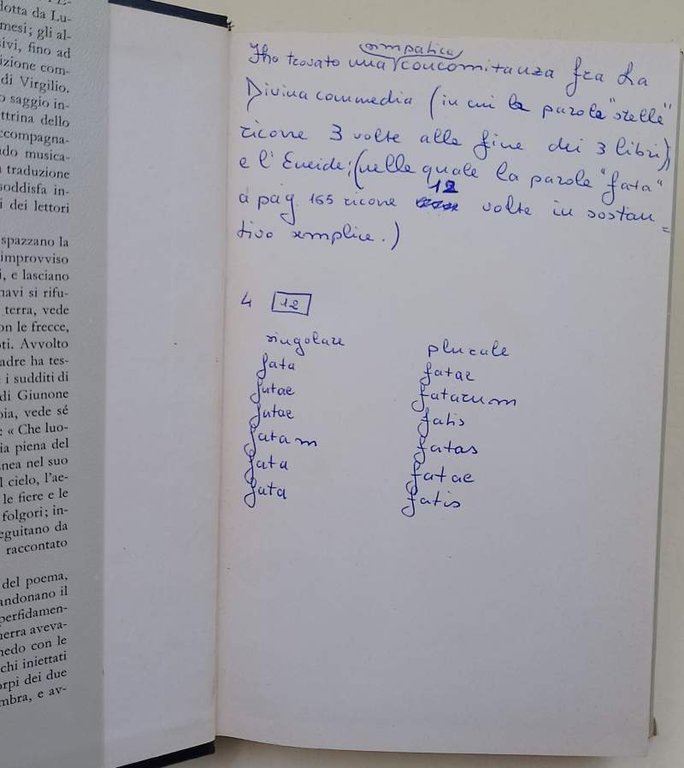 dotta da Lu-
mesi; gli al-
sivi, fino ad
izione com-
di Virgilio.
o saggio in-
ttrina dello
ccompagna-
do musica-
a traduzione
soddisfa in-
i dei lettori
spazzano la
improvviso
i, e lasciano
navi si rifu-
terra, vede
on le frecce,
oti. Avvolto
adre ha tes-
i sudditi di
di Giunone
oia, vede sé
: « Che luo-
ia piena del
nea nel suo
l cielo, l'ae-
le fiere e le
folgori; in-
eguitano da
raccontato
del poema,
andonano il
perfidamen-
nerra aveva-
nedo con le
chi iniettati
orpi dei due
mbra, e av-
simpatica
Ho trovato una concomitanza fra La
Divina commedia (in cui la parola "stelle"
ricorre 3 volte alla fine dei 3 libri),
e l'Eneide; (nella quale la parola "fata"
12
a pag 165 ricorre volte in sostan=
tivo semplice.)
4 12
singolare plurale
fata fatae
fatae fatarum
fatae fatis
fatam fatas
fata fatae
fata fatis